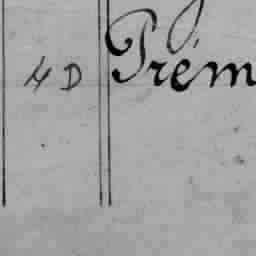 4 D Prém